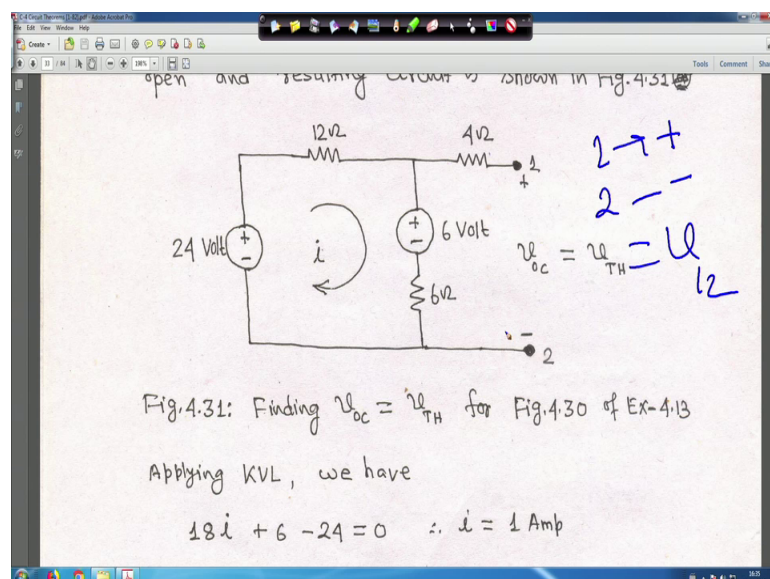 C-4 Circuit Theorems [1-82].pdf - Adobe Acrobat Pro
File Edit View Window Help
Create
33 / 84 198% Tools Comment Share
open and resulting circuit is shown in Fig.4.31
12Ω 4Ω 1
+
1 → +
2 - -
24 Volt + - i + - 6 Volt
v_oc = v_TH = v_12
6Ω
- 2
Fig.4.31: Finding v_oc = v_TH for Fig.4.30 of Ex-4.13
Applying KVL, we have
18i + 6 - 24 = 0 ∴ i = 1 Amp
16:35